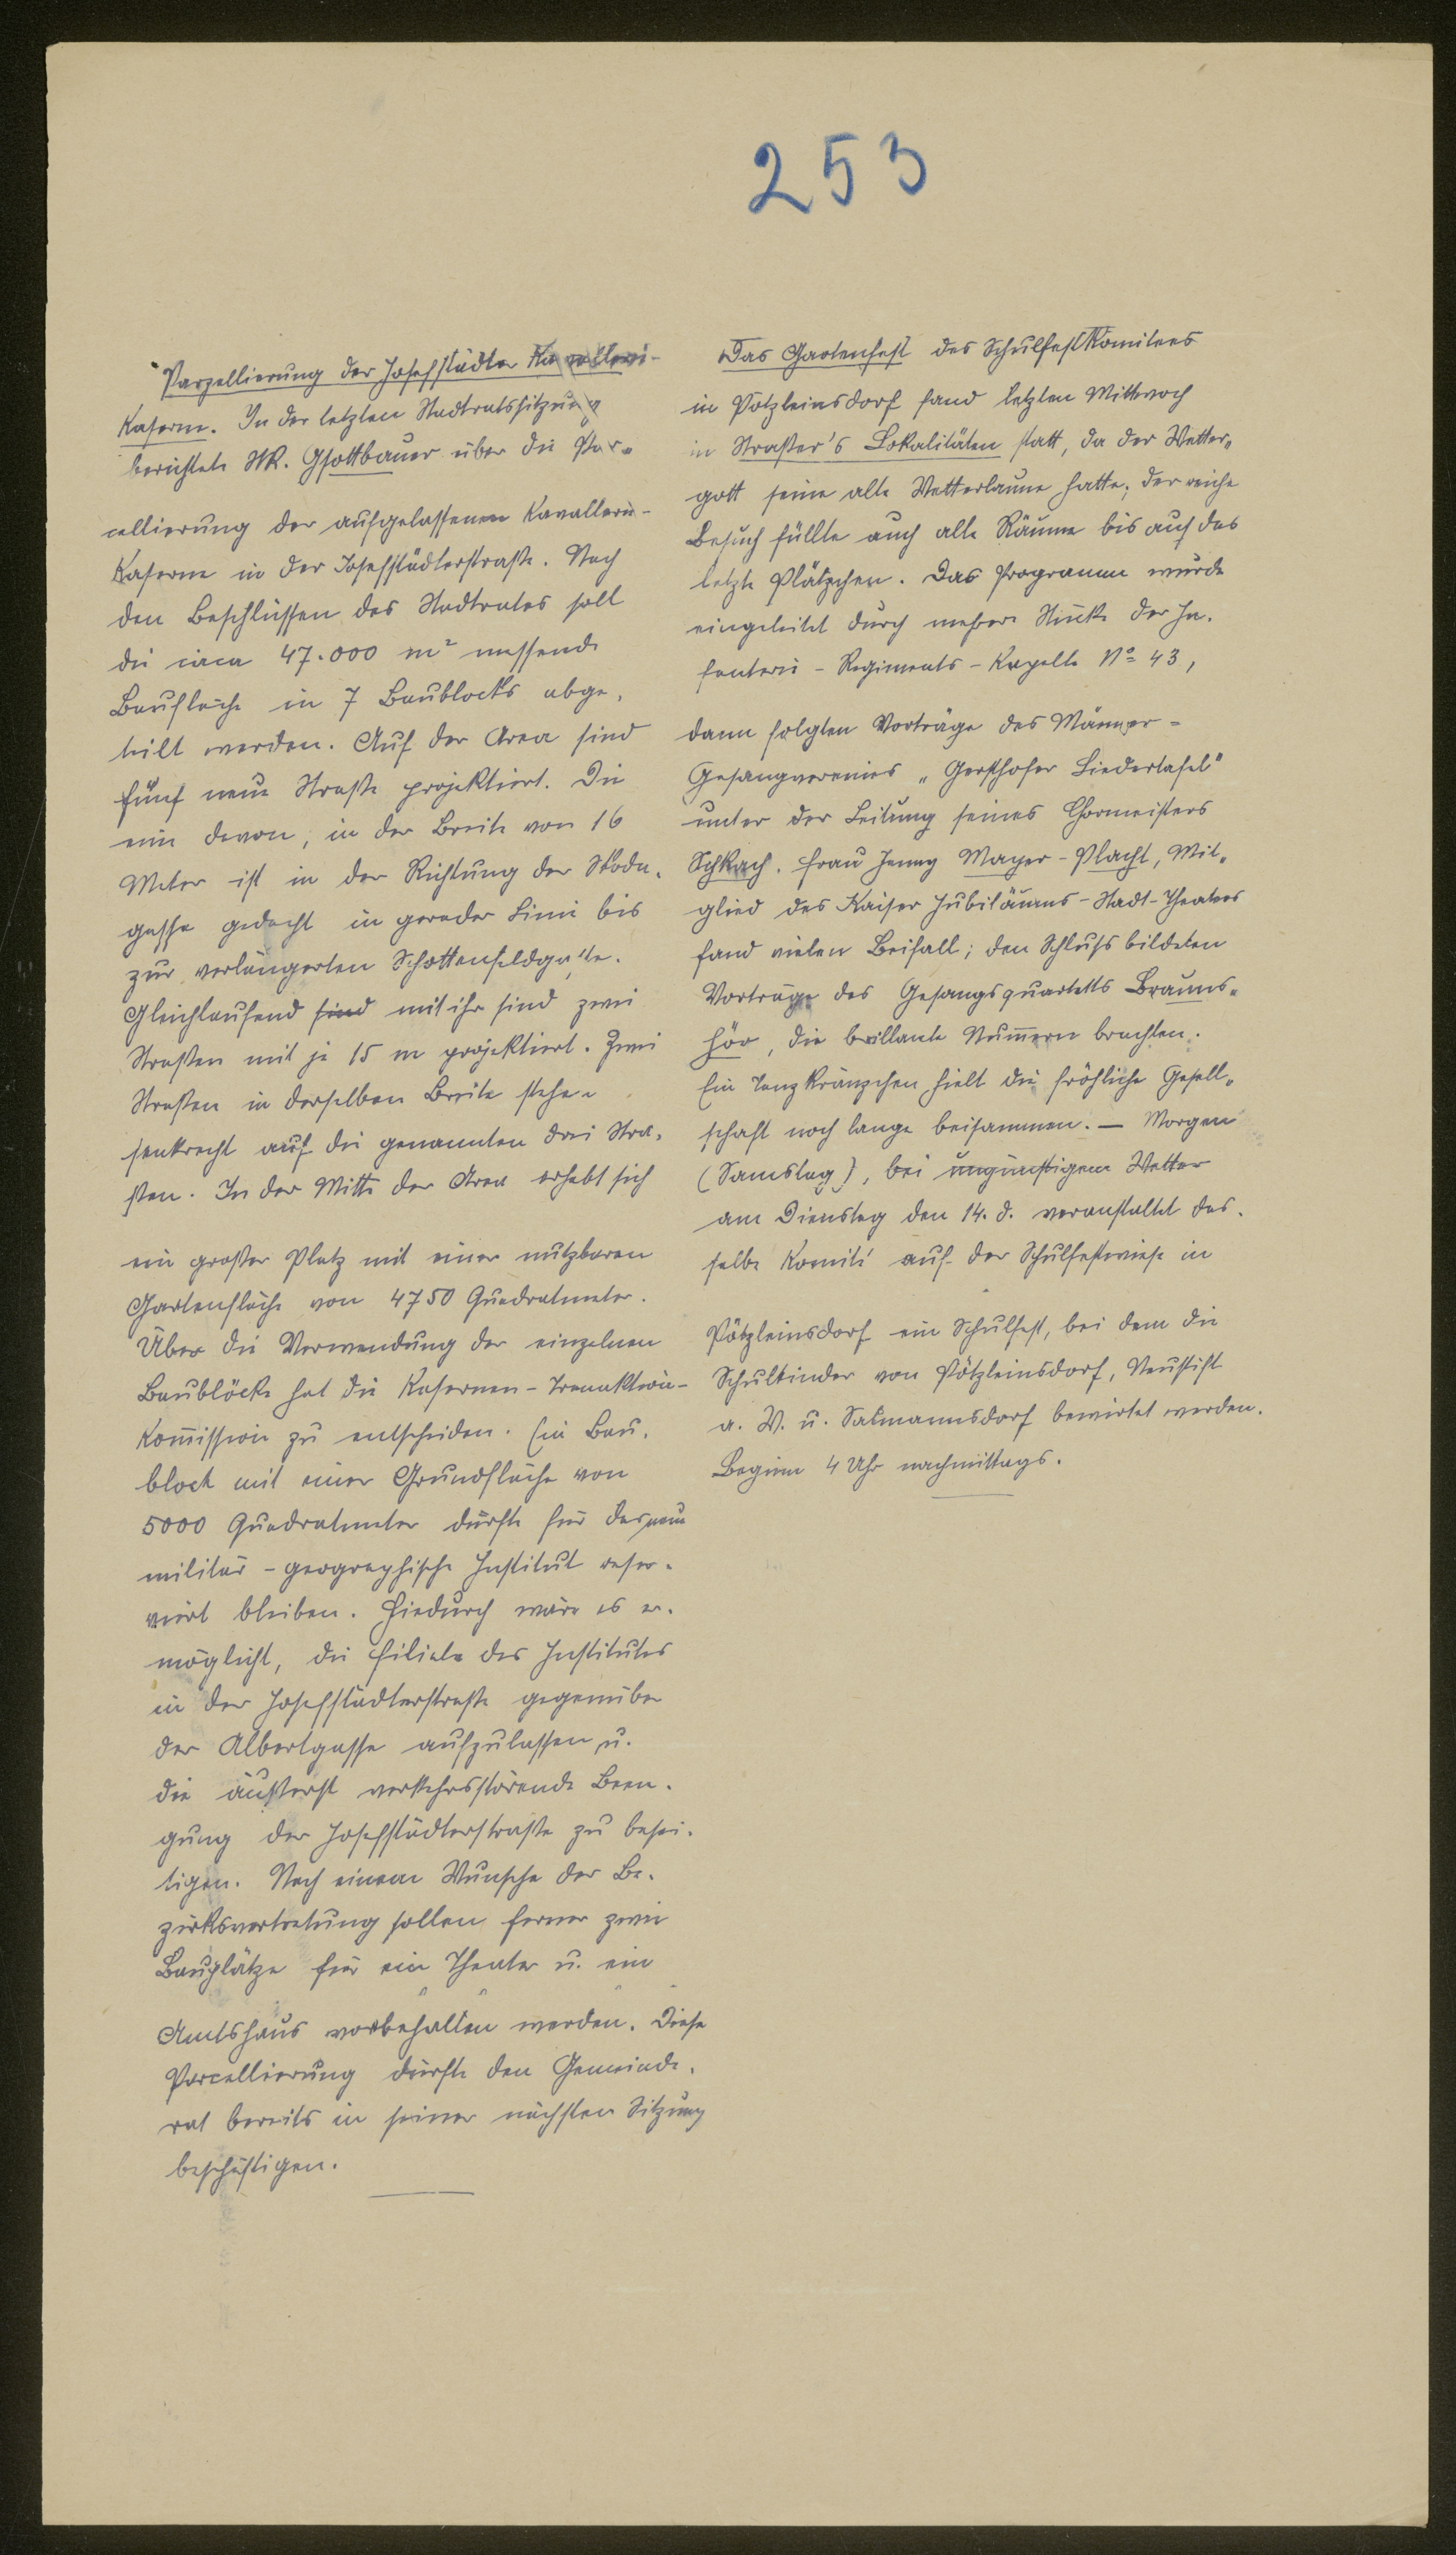 253
Parzellierung der Josefstädter Kavallerie-
Kaserne. In der letzten Stadtratssitzung
berichtete StR. Gsottbauer über die Par-
cellierung der aufgelassenen Kavallerie-
Kaserne in der Josefstädterstraße. Nach
den Beschlüssen des Stadtrates soll
die circa 47.000 m² messende
Baufläche in 7 Baublocks abge-
teilt werden. Auf der Area sind
fünf neue Straße projektiert. Die
eine davon, in der Breite von 16
Meter ist in der Richtung der Skoda-
gasse gedacht in gerader Linie bis
zur verlängerten Schottenfeldgasse.
Gleichlaufend sind mit ihr sind zwei
Straßen mit je 15 m projektiert. Zwei
Straßen in derselben Breite stehen
senkrecht auf die genannten drei Stra-
ßen. In der Mitte der Area erhebt sich
ein großer Platz mit einer nutzbaren
Gartenfläche von 4750 Quadratmeter.
Über die Verwendung der einzelnen
Baublöcke hat die Kasernen-Transaktion-
Kom̄ission zu entscheiden. Ein Bau-
block mit einer Grundfläche von
5000 Quadratmeter dürfte für das neue
militär-geographische Institut reser-
viert bleiben. Hiedurch wäre es er-
möglicht, die Filiale des Institutes
in der Josefstädterstraße gegenüber
der Albertgasse aufzulassen u.
die äußerst verkehrsstörende Been-
gung der Josefstädterstraße zu besei-
tigen. Nach einem Wunsche der Be-
zirksvertretung sollen ferner zwei
Bauplätze für ein Theater u. ein
Amtshaus vorbehalten werden. Diese
Parcellierung dürfte den Gemeinde-
rat bereits in seiner nächsten Sitzung
beschäftigen.
Das Gartenfest des Schulfestkomitees
in Pötzleinsdorf fand letzten Mittwoch
in Straßer's Lokalitäten statt, da der Wetter-
gott seine alte Wetterlaune hatte; der reiche
Besuch füllte auch alle Räume bis auf das
letzte Plätzchen. Das Programm wurde
eingeleitet durch mehrere Stücke der In-
fanterie-Regiments-Kapelle No 43,
dann folgten Vorträge des Männer-
Gesangvereines „Gersthofer Liedertafel"
unter der Leitung seines Chormeisters
Schkach. Frau Jenny Mayer-Placht, Mit-
glied des Kaiser Jubiläums-Stadt-Theaters
fand vielen Beifall; den Schluß bildeten
Vorträge des Gesangsquartetts Brauns-
hör, die brillante Num̄ern brachten.
Ein Tanzkränzchen hielt die fröhliche Gesell-
schaft noch lange beisammen. — Morgen
(Samstag), bei ungünstigem Wetter
am Dienstag den 14. d. veranstaltet das-
selbe Komité auf der Schulfestwiese in
Pötzleinsdorf ein Schulfest, bei dem die
Schulkinder von Pötzleinsdorf, Neustift
a. W. u. Salmannsdorf bewirtet werden.
Beginn 4 Uhr nachmittags.